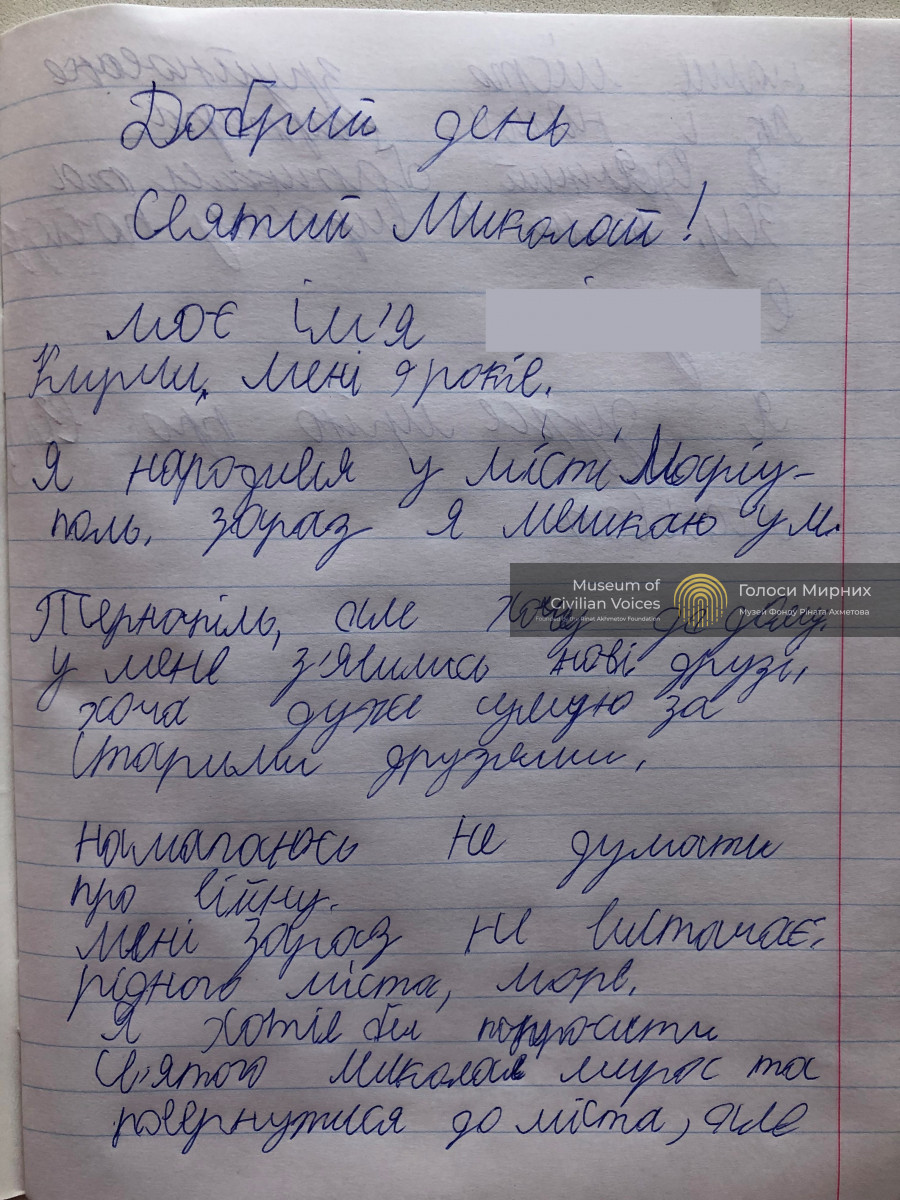 Добрий день
Святий Миколай!
моє ім'я
мені 9 років.
Я народився у місті Маріу-
поль. зараз я мешкаю у м.
Museum of
Civilian Voices
Founded by the Rinat Akhmetov Foundation
Голоси Мирних
Музей Фонду Ріната Ахметова
Тернопіль, але хочу до дому.
у мене з'явились нові друзі,
хоча дуже сумую за
старими друзями.
намагаюсь не думати
про війну.
мені зараз не вистачає:
рідного міста, моря.
Я хотів би попросити
Св'ятого Миколая миру та
повернутися до міста, але